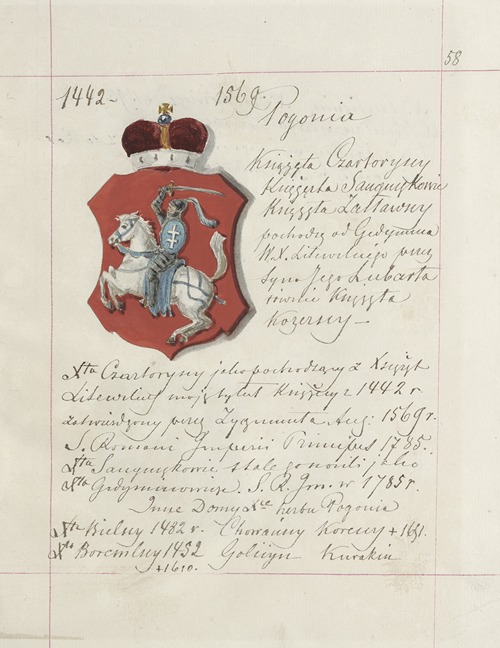 58
1442 - 1569.
Pogonia
Książęta Czartoryscy
Książęta Sanguszkowie
Książęta Zasławscy
pochodzą od Gedymina
W.X. Litewskiego przez
syna Jego Lubarta
równie Książęta
Kozerscy —
Xta Czartoryscy jako pochodzący z Książąt
Litewskich mają tytuł Książęcy z 1442 r
zatwierdzony przez Zygmunta Aug: 1569 r.
S. Romani Imperii Principes 1785.
Xta Sanguszkowie stale go nosili jako
Xta Gedyminowicze. S. R. Im. w 1785 r.
Inne Domy Xce herbu Pogonia
Xta Bielscy 1482 r. Chowańscy Koreccy +1651.
Xta Boremlscy 1452 Golicyn Kurakin
+1610.